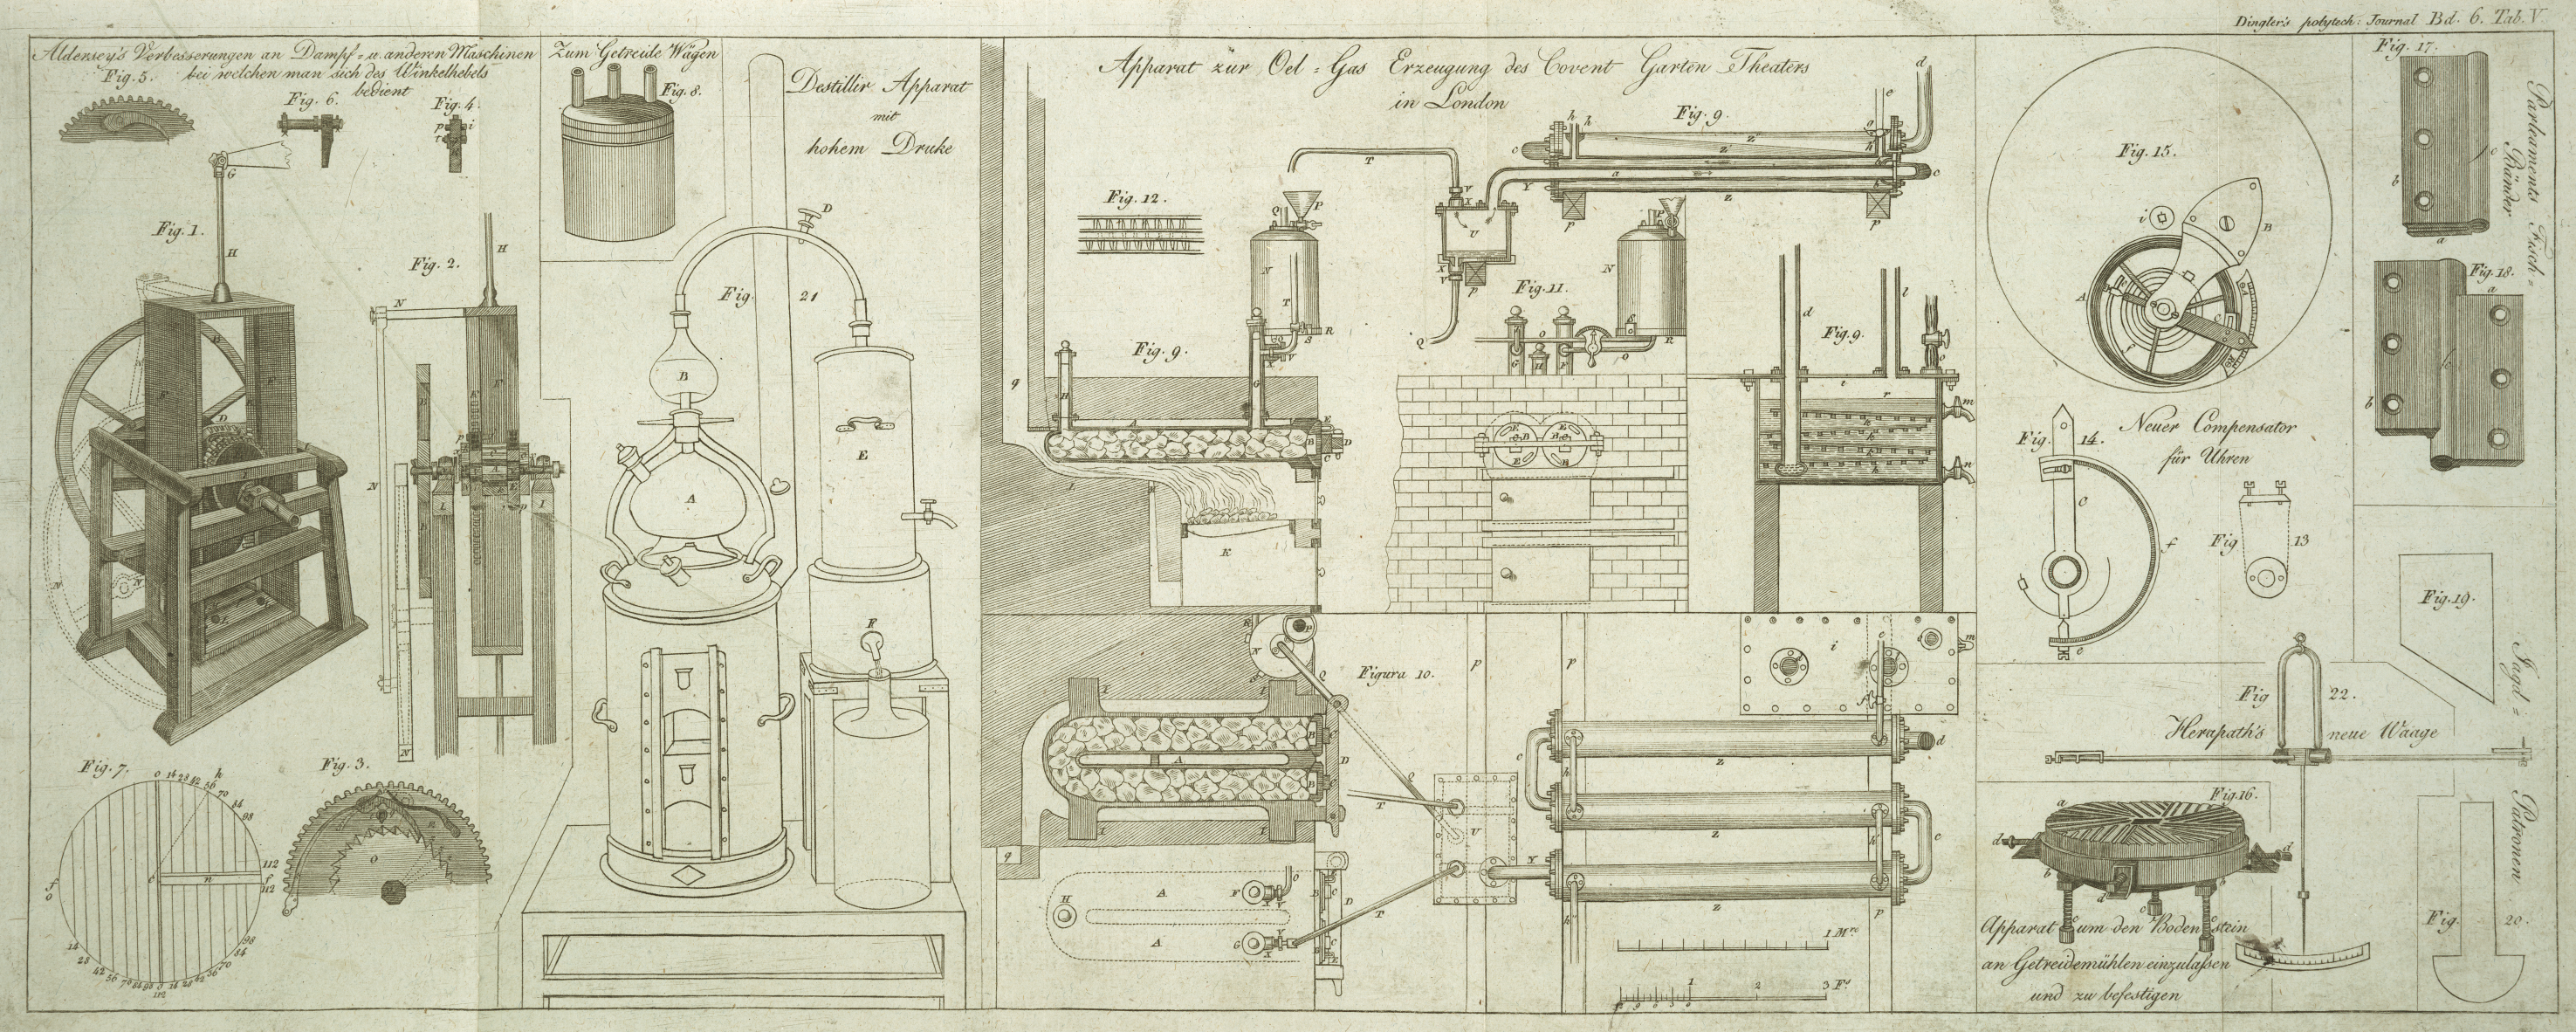 Dingler's polytech: Journal Bd. 6. Tab. V
Aldersey's Verbesserungen an Dampf = u. anderen Maschinen
bei welchen man sich des Winkelhebels
bedient
Fig. 5.
Fig. 6.
Fig. 4.
Fig. 1.
Fig. 2.
Fig. 7.
Fig. 3.
Zum Getreide Wägen
Fig. 8.
Destillir Apparat
mit
hohem Druke
Fig. 21
Apparat zür Oel = Gas Erzeugung des Covent Garten Theaters
in London
Fig. 9.
Fig. 12.
Fig. 11.
Fig. 9.
Fig. 9.
Figura 10.
1 Mre
1 2 3 Fs
Fig. 15.
Neuer Compensator
für Uhren
Fig. 14.
Fig 13
Fig 22.
Herapath's neue Waage
Fig. 16.
Apparat um den Bodenstein
an Getreidemühlen einzulaßen
und zu befestigen
Fig. 17.
Parleaments Fisch =
Bänder
Fig. 18.
Fig. 19.
Jagd =
Patronen
Fig. 20.